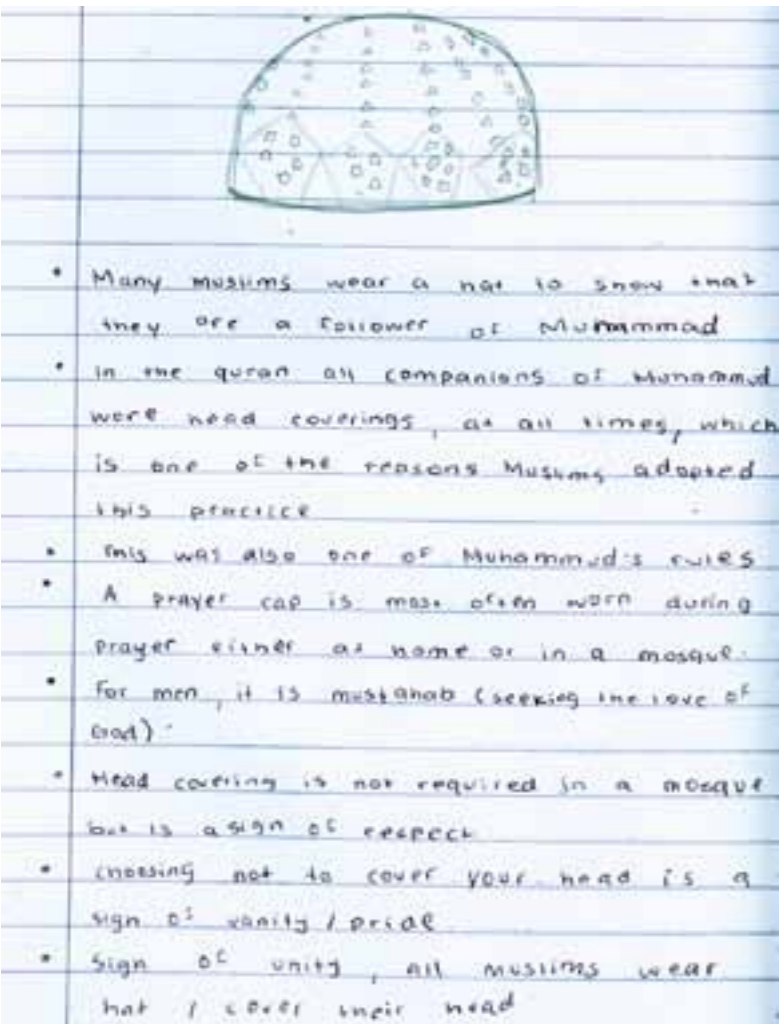 Many muslims wear a hat to show that
they are a follower of Muhammad
In the quran all companions of Muhammud
wore head coverings, at all times, which
is one of the reasons Muslims adopted
this practice
This was also one of Muhammud's rules
A prayer cap is most often worn during
prayer either at home or in a mosque.
For men, it is mustahab (seeking the love of
God).
Head covering is not required in a mosque
but is a sign of respect
Choosing not to cover your head is a
sign of vanity / pride
Sign of unity, all muslims wear
hat / cover their head